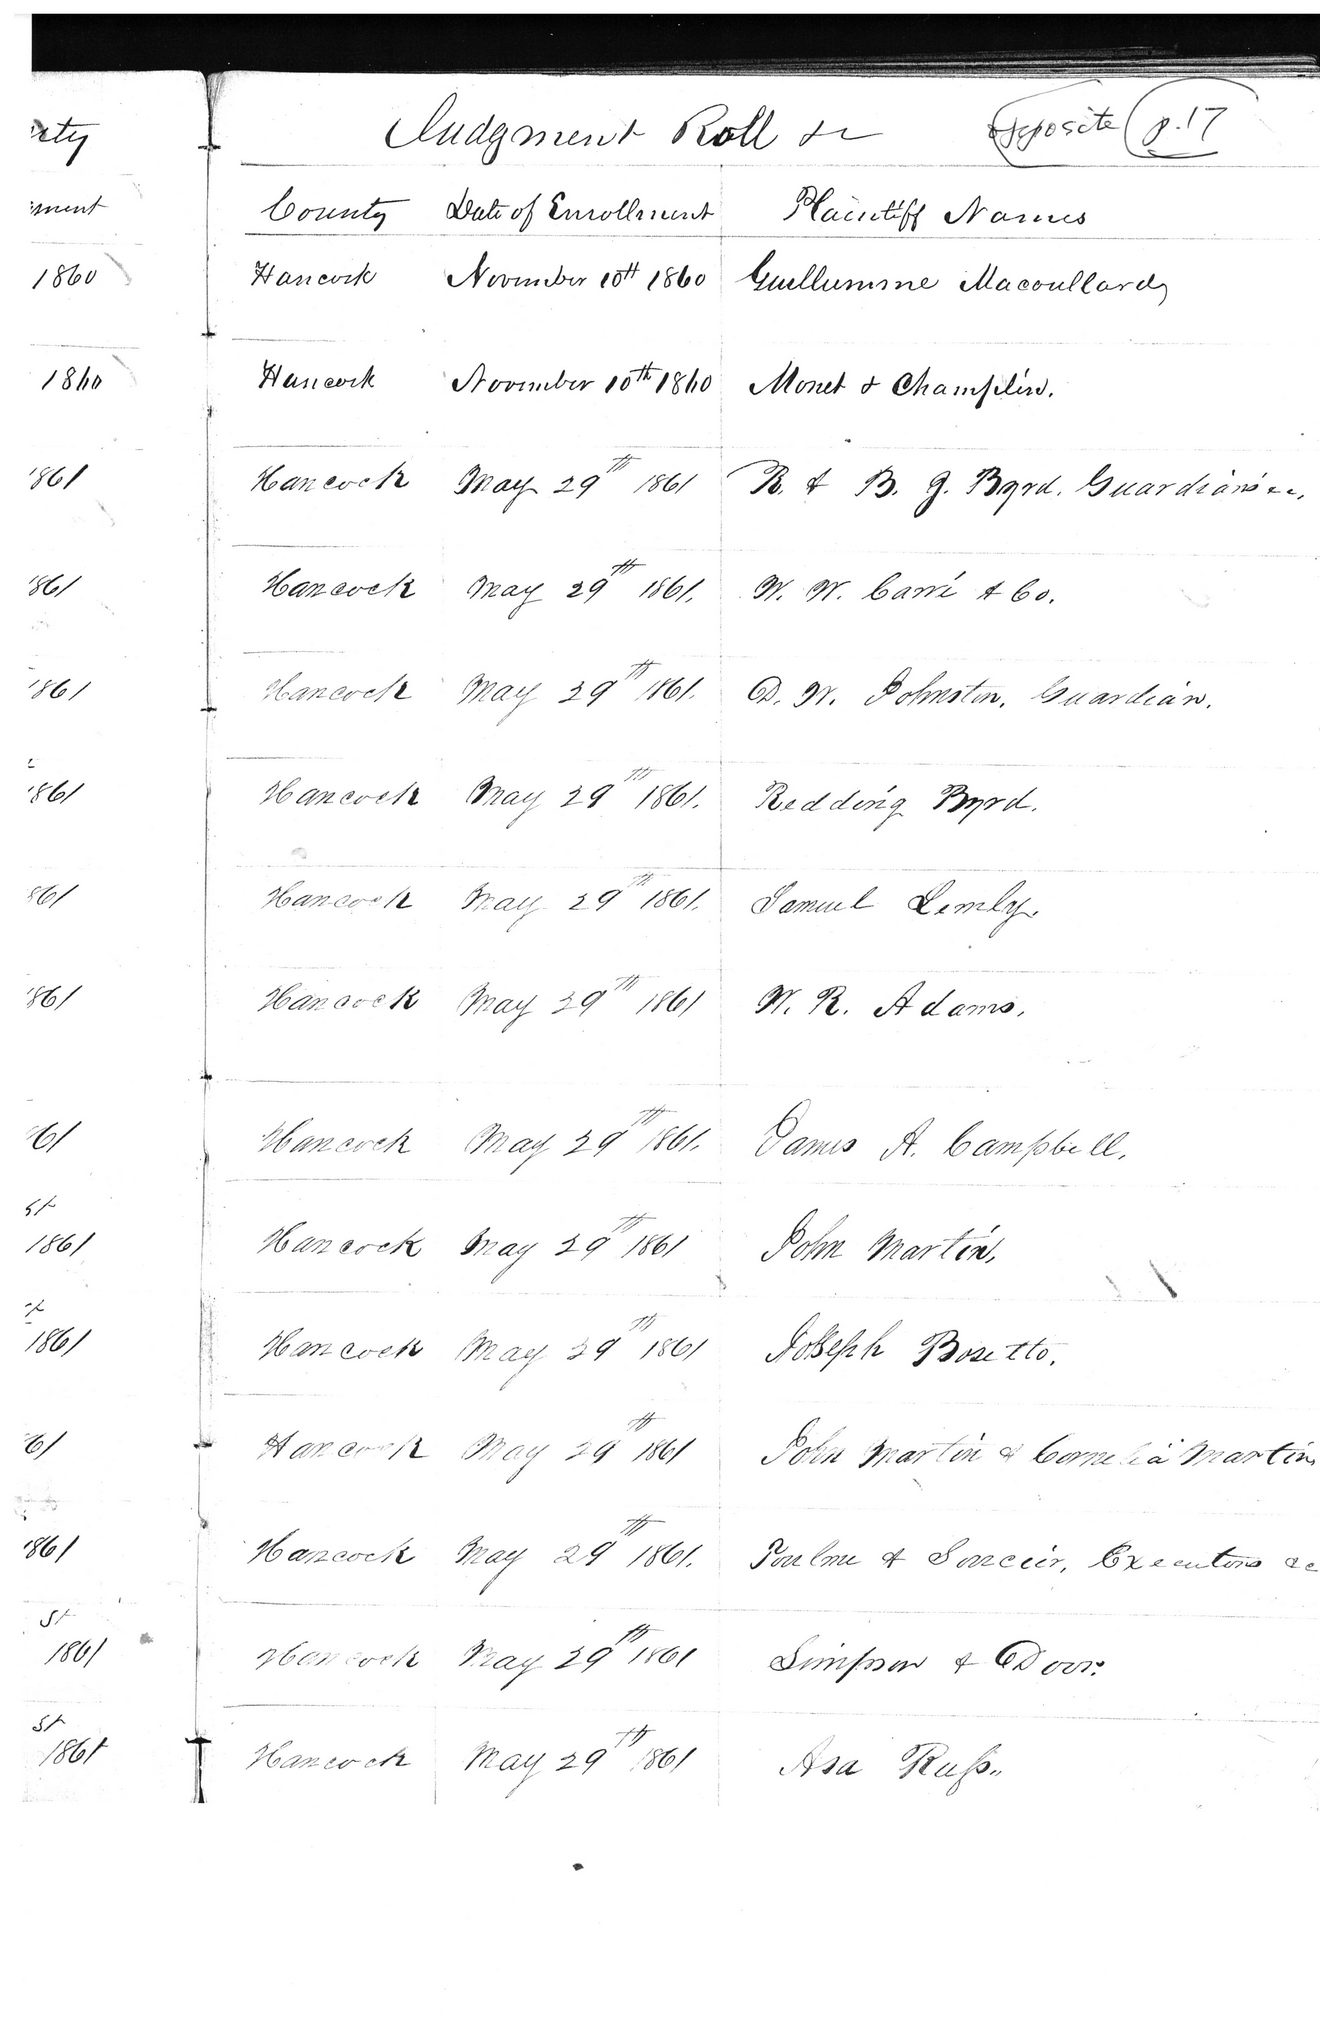 Judgment Roll &c opposite p. 17
County Date of Enrollment Plaintiff Names
1860 Hancock November 10th 1860 Guillumme Macoullard,
1860 Hancock November 10th 1860 Monet & Champlin.
1861 Hancock May 29th 1861 R. & B. J. Byrd. Guardians &c.
1861 Hancock May 29th 1861. W. W. Carré & Co.
1861 Hancock May 29th 1861. D. W. Johnston. Guardian.
1861 Hancock May 29th 1861. Redding Byrd.
861 Hancock May 29th 1861. Samuel Lemly.
1861 Hancock May 29th 1861 W. R. Adams.
61 Hancock May 29th 1861. James A. Campbell.
st
1861 Hancock May 29th 1861 John Martin,
1861 Hancock May 29th 1861 Joseph Bosetto.
61 Hancock May 29th 1861 John Martin & Cornelia Martin
1861 Hancock May 29th 1861. Executors &c
st
1861 Hancock May 29th 1861 Simpson & Door.
st
1861 Hancock May 29th 1861 Asa Russ.